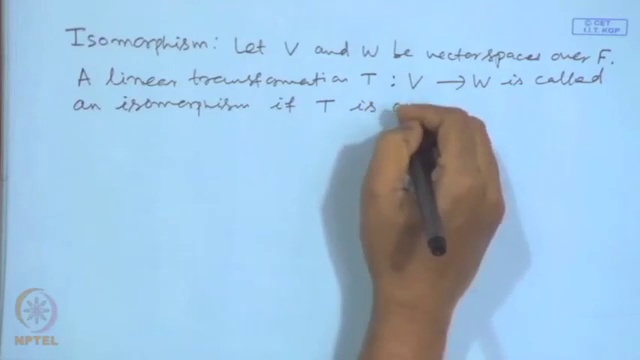 Isomorphism: Let V and W be vector spaces over F.
A linear transformation T : V → W is called
an isomorphism if T is
© CET
I.I.T. KGP
NPTEL